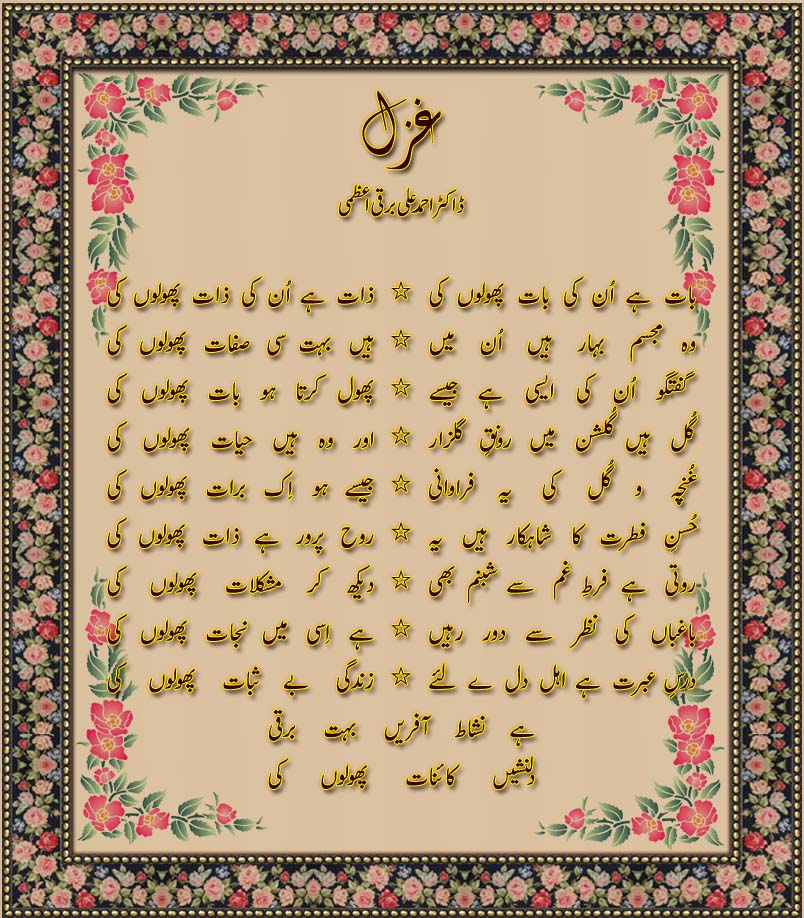 غزل
ڈاکٹر احمد علی برقی اعظمی
بات ہے اُن کی بات پھولوں کی ☆ ذات ہے اُن کی ذات پھولوں کی
وہ مجسم بہار ہیں اُن میں ☆ ہیں بہت سی صفات پھولوں کی
گفتگو اُن کی ایسی ہے جیسے ☆ پھول کرتا ہو بات پھولوں کی
گُل ہیں گُلشن میں رونقِ گلزار ☆ اور وہ ہیں حیات پھولوں کی
غُنچہ و گُل کی یہ فراوانی ☆ جیسے ہو اِک برات پھولوں کی
حُسنِ فطرت کا شاہکار ہیں یہ ☆ روح پرور ہے ذات پھولوں کی
روتی ہے فرطِ غم سے شبنم بھی ☆ دیکھ کر مشکلات پھولوں کی
باغباں کی نظر سے دور رہیں ☆ ہے اِسی میں نجات پھولوں کی
درسِ عبرت ہے اہل دل ے لئے ☆ زندگی بے ثبات پھولوں کی
ہے نشاط آفریں بہت برقی
دلنشیں کائنات پھولوں کی